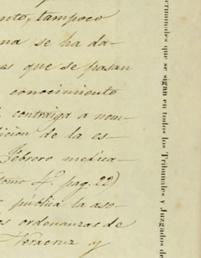 nto, tampoco
na se ha da-
as que se pasan
conocimiento
contraiga a nom-
icion de la es-
Febrero medica
tomo 4º pag. 22)
publica la aso-
os ordenanzas de
Veracruz y
criminales que se sigan en todos los Tribunales y Juzgados de